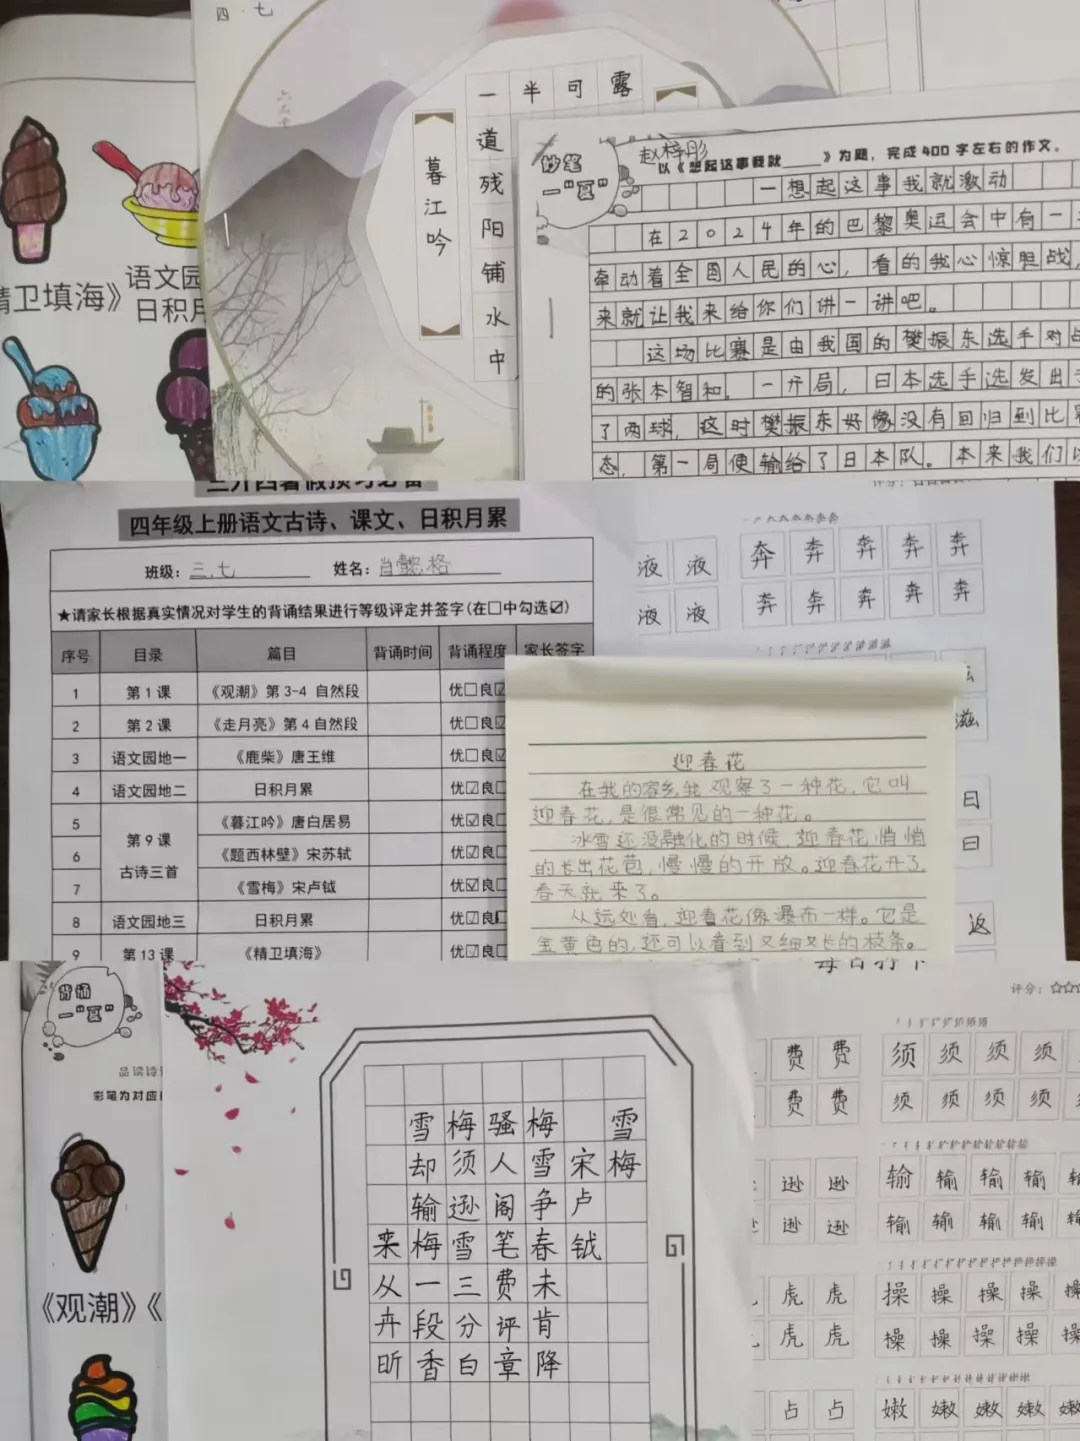 四.七
精卫填海》
语文园
日积月
暮江吟
一半可露
道
残
阳
铺
水
中
妙笔
一“夏”
赵梓彤
以《想起这事我就____》为题，完成400字左右的作文。
一想起这事我就激动
在2024年的巴黎奥运会中有一
牵动着全国人民的心，看的我心惊胆战，
来就让我来给你们讲一讲吧。
这场比赛是由我国的樊振东选手对
的张本智和。一开局，日本选手选发出
了两球，这时樊振东好像没有回归到比
态，第一局便输给了日本队。本来我们
三升四暑假预习必备
四年级上册语文古诗、课文、日积月累
班级：三.七 姓名：肖懿格
★请家长根据真实情况对学生的背诵结果进行等级评定并签字(在□中勾选☑)
序号 目录 篇目 背诵时间 背诵程度 家长签字
1 第1课 《观潮》第3-4 自然段 优□良☑
2 第2课 《走月亮》第4自然段 优□良☑
3 语文园地一 《鹿柴》唐王维 优□良☑
4 语文园地二 日积月累 优☑良□
5 第9课 古诗三首 《暮江吟》唐白居易 优☑良□
6 《题西林壁》宋苏轼 优☑良□
7 《雪梅》宋卢钺 优☑良□
8 语文园地三 日积月累 优☑良□
9 第13课 《精卫填海》 优☑良□
液 液 奔 奔 奔 奔 奔
液 液 奔 奔 奔 奔 奔
滋
日
日
返
迎春花
在我的家乡我观察了一种花，它叫
迎春花，是很常见的一种花。
冰雪还没融化的时候，迎春花悄悄
的长出花苞，慢慢的开放。迎春花开了，
春天就来了。
从远处看，迎春花像瀑布一样。它是
金黄色的，还可以看到又细又长的枝条。
背诵
一“夏”
品读诗
彩笔为对应
《观潮》《
雪梅骚梅 雪
却须人雪宋梅
输逊阁争卢
来梅雪笔春钺
从一三费未
卉段分评肯
昕香白章降
评分：☆☆
费 费 须 须 须 须
费 费 须 须 须 须
逊 逊 输 输 输 输
逊 逊 输 输 输 输
虎 虎 操 操 操 操
虎 虎 操 操 操 操
占 占 嫩 嫩 嫩 嫩